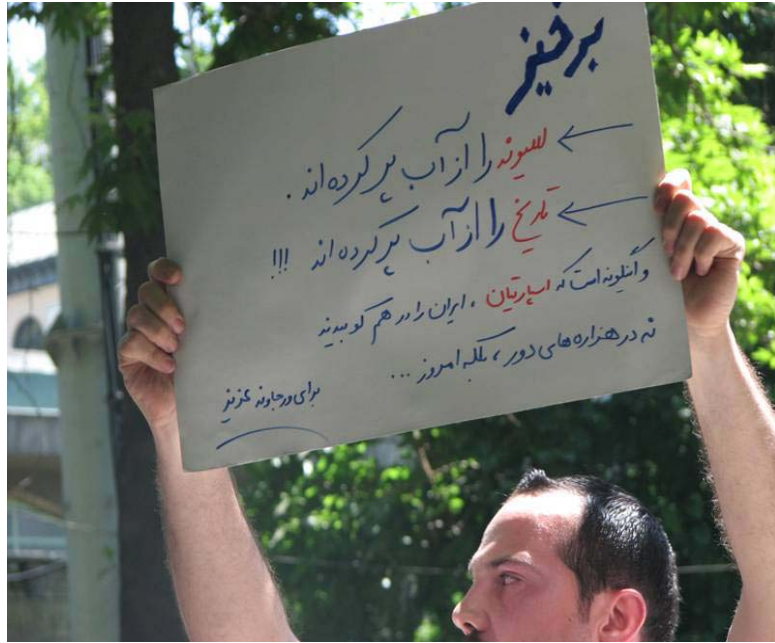 برخیز
← سیوند را از آب پر کرده اند .
← تاریخ را از آب پر کرده اند !!!
و اینگونه است که اسپارتیان ، ایران را در هم کوبیدند
نه در هزاره های دور ، بلکه امروز ...
برای ورجاوند عزیز